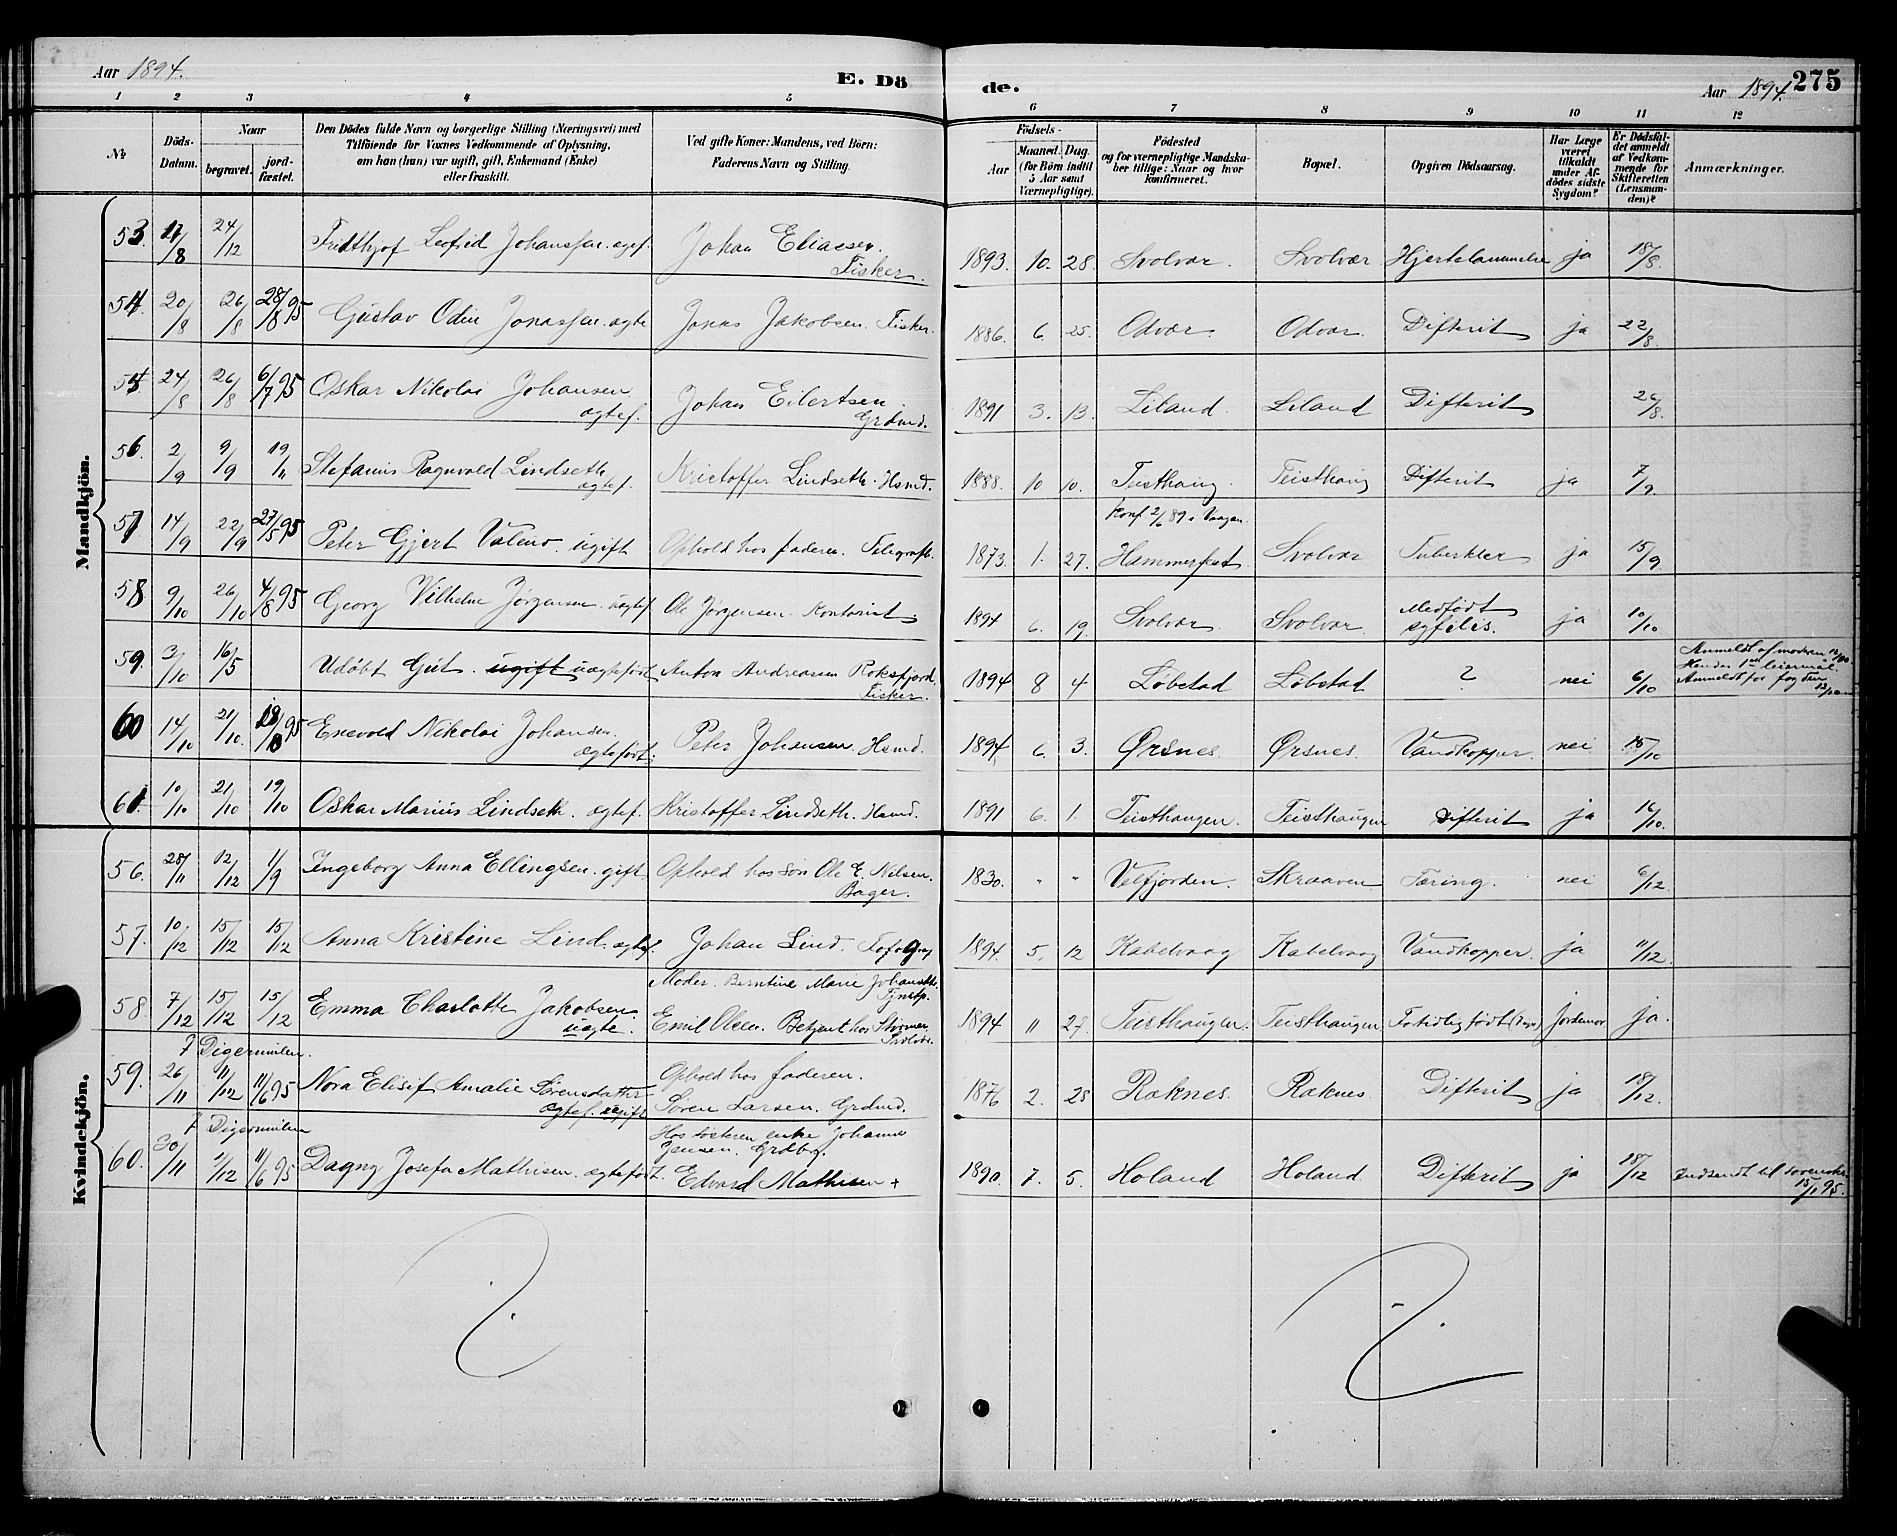 Aar 1894.
E. Dö
de.
Aar 1894.
275
1 2 3 4 5 6 7 8 9 10 11 12
No
Döds-Datum.
Naar
begravet.
jord-fæstet.
Den Dödes fulde Navn og borgerlige Stilling (Næringsvei) med
Tilföiende for Voxnes Vedkommende af Oplysning,
om han (hun) var ugift, gift, Enkemand (Enke)
eller fraskilt.
Ved gifte Koner: Mandens, ved Börn:
Faderens Navn og Stilling.
Födsels-
Aar
Maaned.
Dag.
(for Börn indtil
5 Aar samt
Værnepligtige).
Födested
og for værnepligtige Mandska-
ber tillige: Naar og hvor
konfirmeret.
Bopæl.
Opgiven Dödsaarsag.
Har Læge
været
tilkaldt
under Af-
dödes sidste
Sygdom?
Er Dödsfal-
det anmeldt
af Vedkom-
mende for
Skifteretten
(Lensman-
den)?
Anmærkninger.
Mandkjön.
53. 17/8 24/12 Fridthjof Leofred Johanssen. ægtef. Johan Eliassen. Fisker. 1893. 10. 28. Svolvær. Svolvær Hjertelammelse ja 18/8.
54. 20/8 26/8 28/8 95 Gustav Odin Jonassen. ægte Jonas Jakobsen. Fisker. 1886. 6. 25. Odvær. Odvær. Difterit ja 22/8.
55. 24/8 26/8 6/7 95 Oskar Nikolai Johansen ægtef. Johan Eilertsen. Grdmd. 1891 3. 13. Liland. Liland Difterit 26/8.
56. 2/9 9/9 19/11 Stefanus Ragnvald Lindseth ægtef. Kristoffer Lindseth. Hsmd. 1888. 10 10. Teisthaug. Teisthaug Difterit ja 7/9.
57. 14/9 22/9 27/5 95 Peter Gjert Valeur. ugift Ophold hos faderen. Telegrafb. 1873. 1. 27. Konf 2/6 89 i Vaagan. Hammerfest. Svolvær Tuberkler ja 15/9
58 9/10 26/10 4/8 95 Georg Vilhelm Jørgensen. uægtef. Ole Jørgensen. Kontorist. 1894 6. 19. Svolvær. Svolvær. Medfødt syfilis. ja 10/10
59. 3/10 16/5 Udøbt Gut. ugift uægtefødt Anton Andreassen Roksfjord. Fisker. 1894 8 4 Løbstad Løbstad ? nei 6/10 Anmeldt af moderen
Hendes 1ste leiermål.
Anmeldt for fogden
60 14/10 21/10. 95 Enevold Nikolai Johansen. ægtefødt. Peter Johansen. Hsmd. 1894 6. 3. Ørsnes. Ørsnes. Vandkopper. nei 15/10
61. 10/10 21/10 19/10 Oskar Marius Lindseth. ægtef. Kristoffer Lindseth. Hsmd. 1891 6. 1. Teisthaugen. Teisthaugen Difterit ja 16/10.
Kvindekjön.
56. 28/11 12/12 1/9 Ingeborg Anna Ellingsen. gift Ophold hos søn Ole E. Nilsen. Bager. 1830. " " Velfjorden. Skraaven Tæring. nei 6/12
57. 10/12 15/12 15/12 Anna Kristine Lind. ægtef. Johan Lind. Fotograf 1894. 5. 12 Kabelvaag Kabelvaag Vandkopper. ja 11/12.
58. 7/12 15/12 15/12 Emma Charlotte Jakobsen. uægte. Moder. Berntine Marie Johansdtr. Tjnstp.
Emil Olsen. Betjent hos Svolvær. 1894 11 27. Teisthaugen. Teisthaugen Fortidlig født Jordemor ja.
59. 26/11 i Digermulen. 11/12 11/6 95 Nora Elisif Amalie Sørensdatter ægtef. ugift Ophold hos faderen.
Søren Larsen. Grdmd. 1876 2. 28 Raknes. Raknes. Difterit ja 18/12.
60. 30/11 i Digermulen 11/12 11/6 95 Dagny Josefa Mathisen. ægtefødt. Hos søsteren enke Johanna
Jensen. Grdbr.
Edvard Mathisen + 1890. 7. 5. Holand Holand. Difterit ja 18/12 Indsendt til sorenskr. 15/1 95.